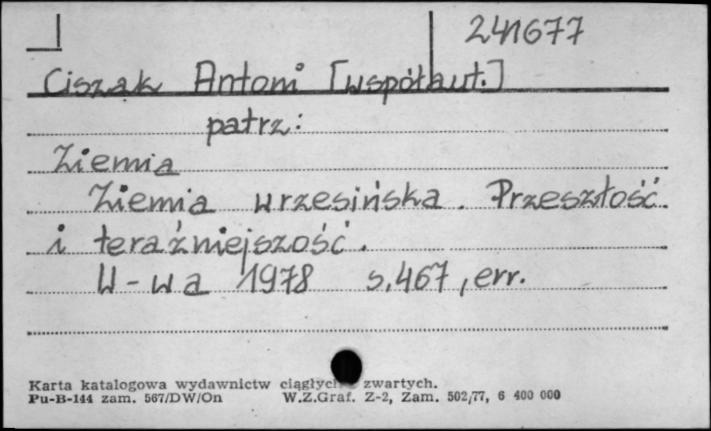 241677
Ciszak Antoni [współaut.]
patrz:
Ziemia
Ziemia wrzesińska. Przeszłość
i teraźniejszość.
W-wa 1978 s.467, err.
Karta katalogowa wydawnictw ciągłych zwartych.
Pu-B-144 zam. 567/DW/On W.Z.Graf. Z-2, Zam. 502/77, 6 400 000